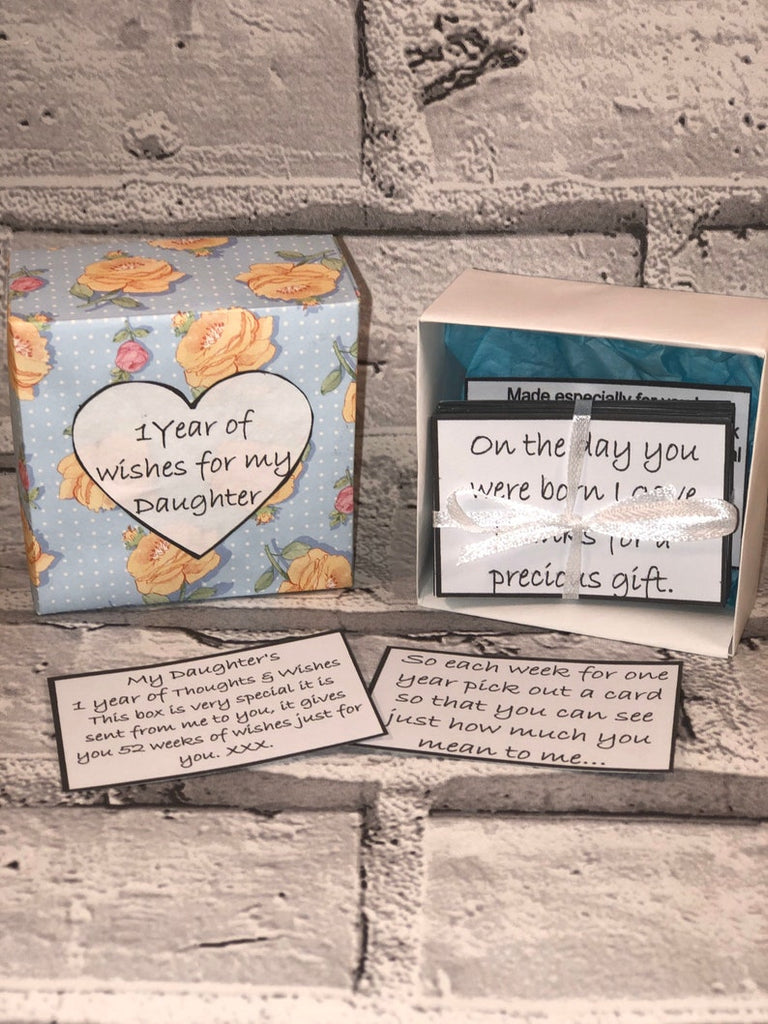 1 Year of
wishes for my
Daughter
Made especially for you
On the day you
were born I gave
thanks for a
precious gift.
My Daughter's
1 year of Thoughts & Wishes
This box is very special it is
sent from me to you, it gives
you 52 weeks of wishes just for
you. xxx.
So each week for one
year pick out a card
so that you can see
just how much you
mean to me...